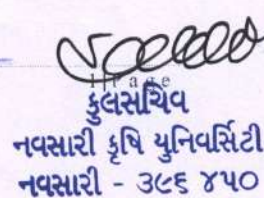 1 | P a g e
કુલસચિવ
નવસારી કૃષિ યુનિવર્સિટી
નવસારી - ૩૯૬ ૪૫૦